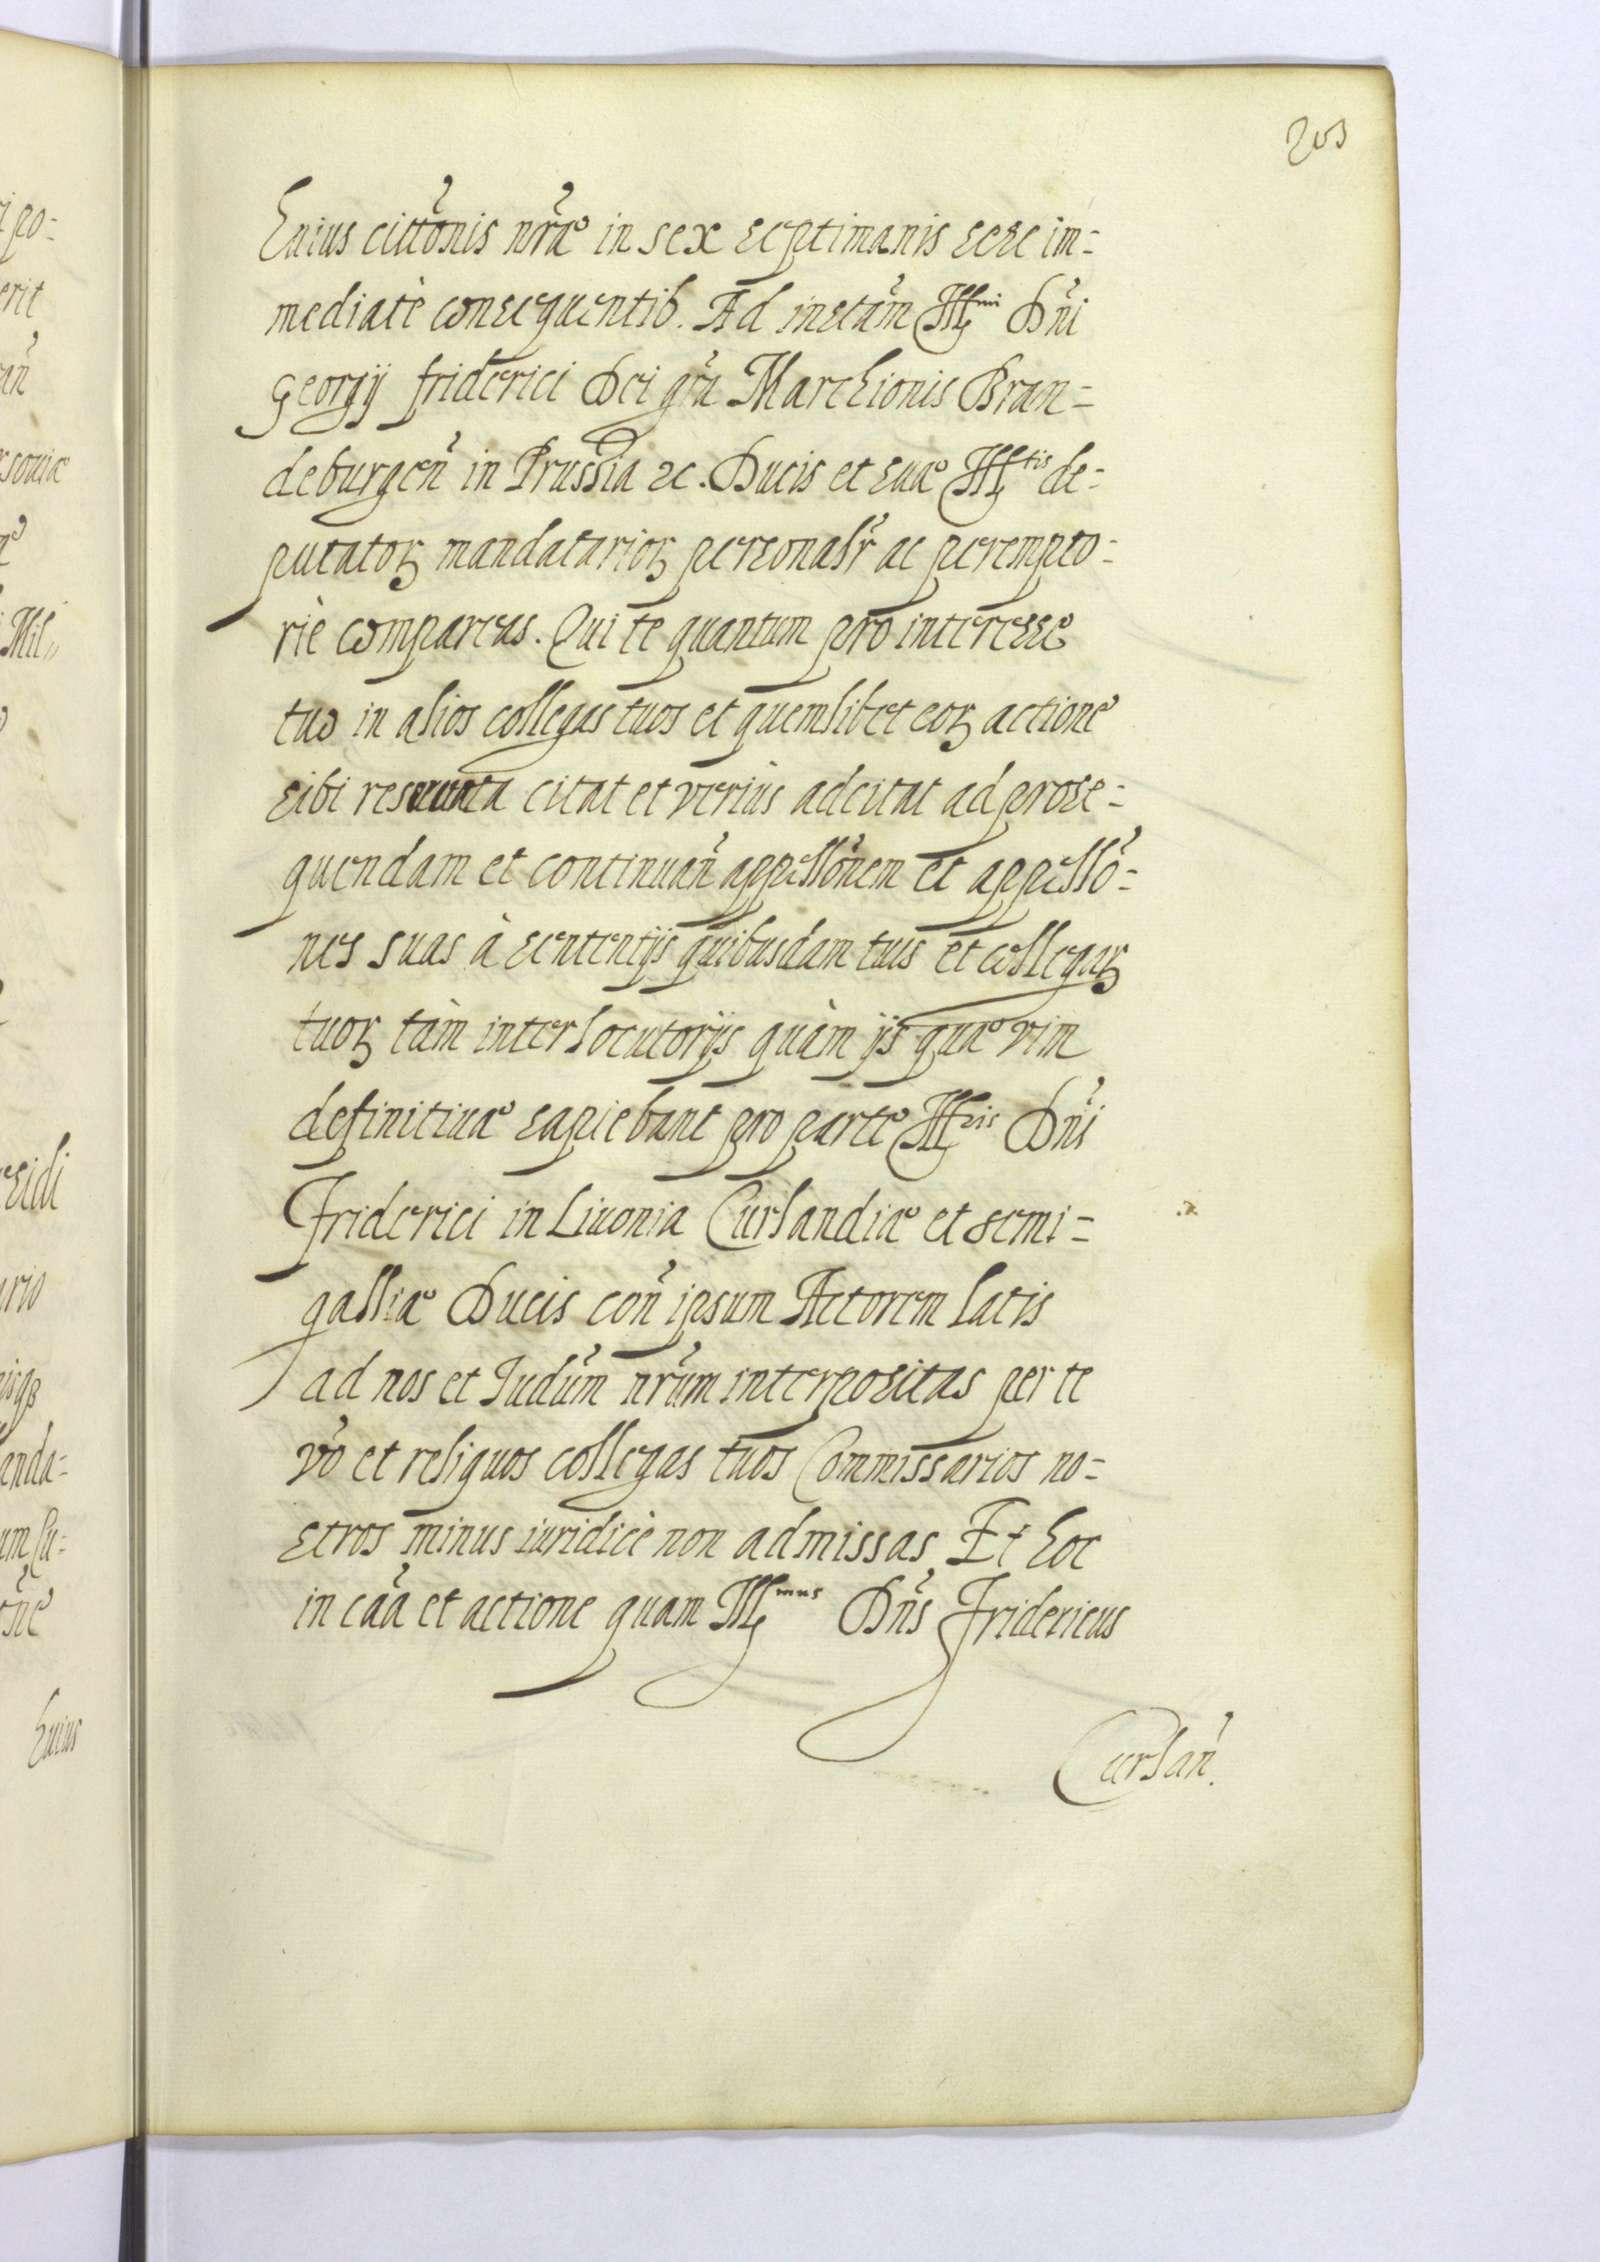 203
huius cittõnis nrãe in sex septimanis sese im=
mediatè consequentib. Ad instãm Ill<sup>mi</sup> Dñi
Georgij friderici Dei grã Marchionis Bran=
deburgeñ in Prussia etc. Ducis et suae Ill<sup>tis</sup> de=
putatoꝝ mandatarioꝝ personalr̃ ac perempto=
riè compareas. Qui te quantum pro interesse
tuo in alios collegas tuos et quemlibet eoꝝ actione
sibi reseruata citat et verius adcitat ad prose=
quendam et continuañ appellõnem et appellõ=
nes suas à sententijs quibusdam tuis et collegaꝝ
tuoꝝ tàm interlocutorijs quàm ijs quae vim
definitiuae sapiebant pro parte Ill<sup>ris</sup> Dñi
Friderici in Liuonia Curlandiae et semi=
galliae Ducis coñ ipsum Actorem latis
ad nos et Iudũm nrũm interpositas per te
võ et reliquos collegas tuos Commissarios no=
stros minus iuridicè non admissas Et hoc
in caã et actione quam Ill<sup>mus</sup> Dñs Fridericus
Curlañ.
ri po=
erit
Mil"
sidi
ario
anda=
um Cu=
huius